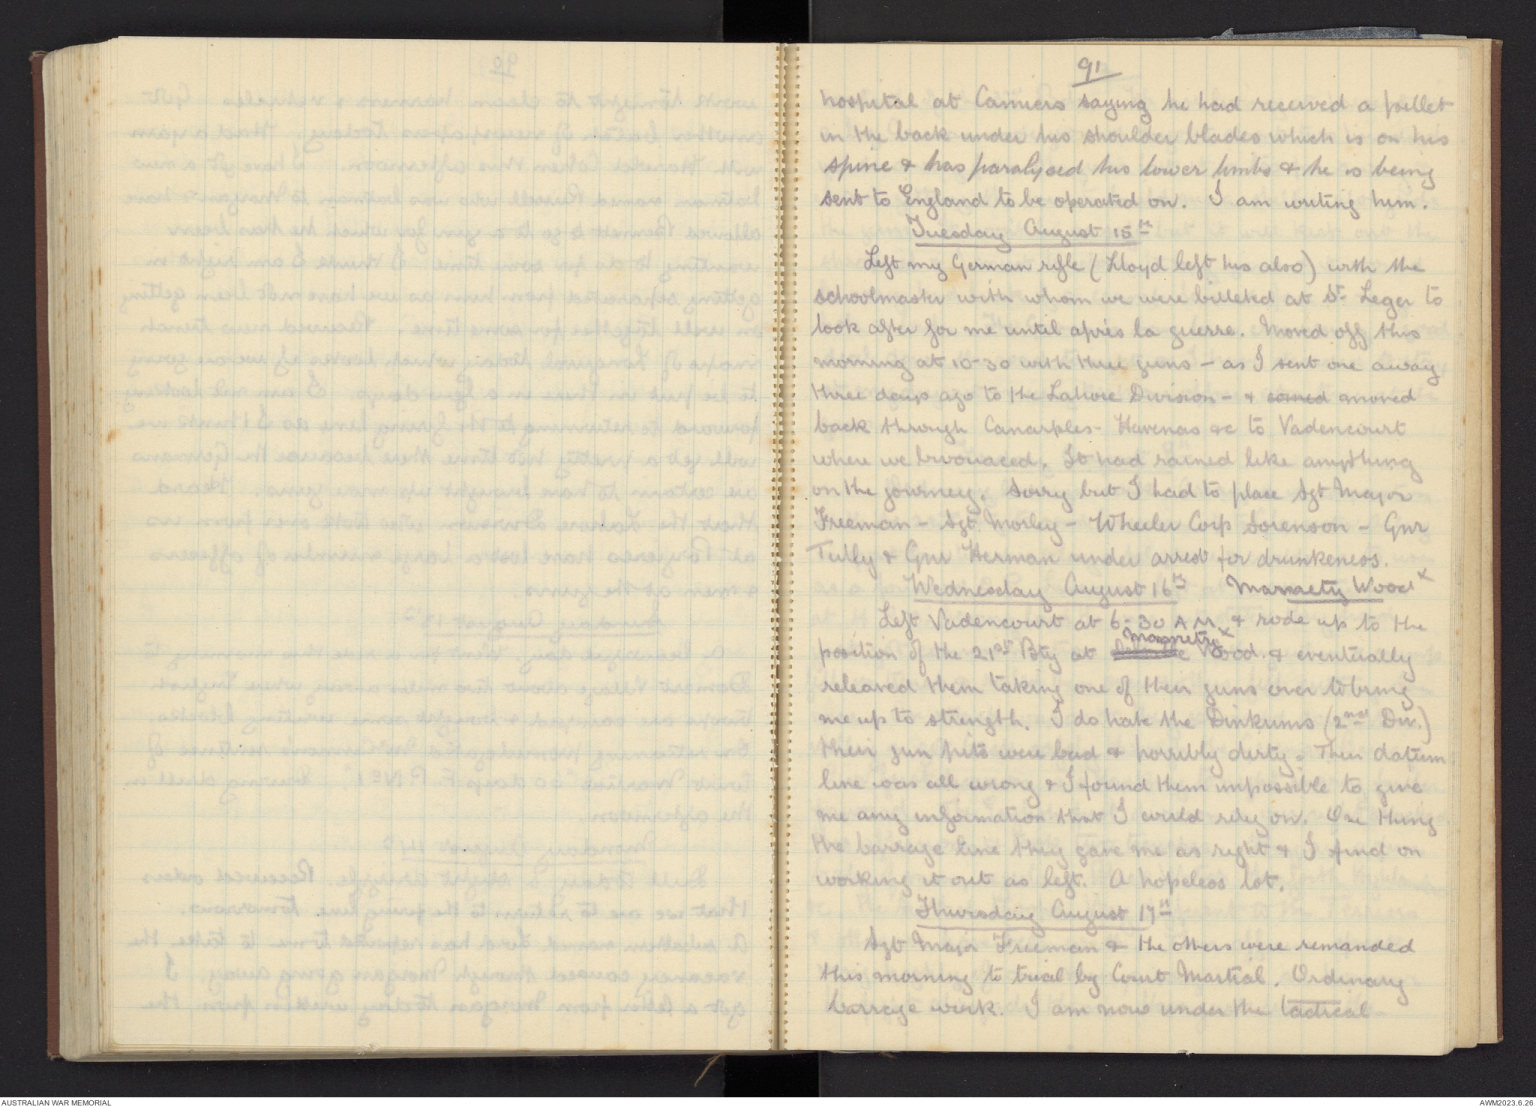 91
hospital at Camiers saying he had received a pellet
in the back under his shoulder blades which is on his
spine & has paralysed his lower limbs & he is being
sent to England to be operated on. I am writing him.
Tuesday August 15th
Left my German rifle (Lloyd left his also) with the
schoolmaster with whom we were billeted at St Leger to
look after for me until après la guerre. Moved off this
morning at 10-30 with three guns - as I sent one away
three days ago to the Lahore Division - & moved
back through Canarples - Havenas &c to Vadencourt
where we bivouaced. It had rained like anything
on the journey. Sorry but I had to place Sgt Major
Freeman - Sgt Morley - Wheeler Corp Sorenson - Gnr
Tully & Gnr Herman under arrest for drunkeness.
Wednesday August 16th Mametz Wood x
Left Vadencourt at 6-30 AM & rode up to the
position of the 21st Bty at Mametz x Wood & eventually
relieved them taking one of their guns over to bring
me up to strength. I do hate the Dinkums (2nd Div.)
their gun pits were bad & horribly dirty. Their datum
line was all wrong & I found them impossible to give
me any information that I could rely on. One thing
the barrage line they gave me as right & I find on
working it out as left. A hopeless lot.
Thursday August 17th
Sgt Major Freeman & the others were remanded
this morning to trial by Court Martial. Ordinary
barrage work. I am now under the tactical
AUSTRALIAN WAR MEMORIAL
AWM2023.6.26